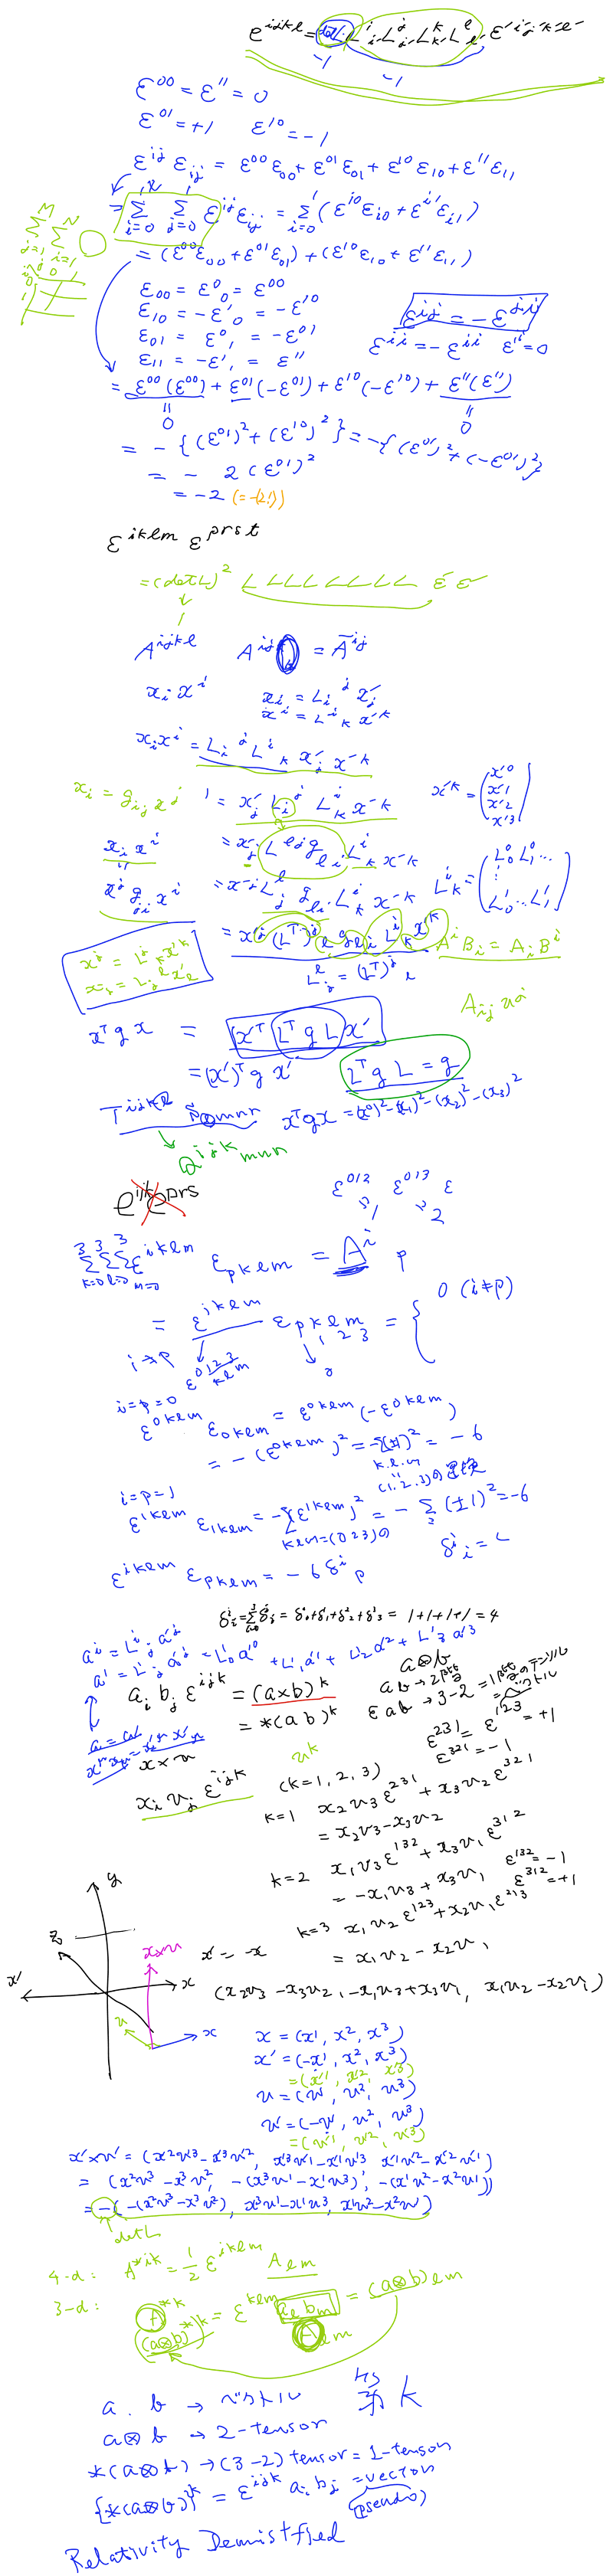 e^{ijkl} = det L L^i_{i'} L^j_{j'} L^k_{k'} L^l_{l'} ε'^{i'j'k'l'}
-1 -1
ε^{00} = ε^{11} = 0
ε^{01} = +1 ε^{10} = -1
ε^{ij} ε_{ij} = ε^{00}ε_{00} + ε^{01}ε_{01} + ε^{10}ε_{10} + ε^{11}ε_{11}
= Σ_{i=0}^{1} Σ_{j=0}^{1} ε^{ij}ε_{ij} = Σ_{i=0}^{1} (ε^{i0}ε_{i0} + ε^{i1}ε_{i1})
= (ε^{00}ε_{00} + ε^{01}ε_{01}) + (ε^{10}ε_{10} + ε^{11}ε_{11})
ε_{00} = ε^0_0 = ε^{00}
ε_{10} = -ε^1_0 = -ε^{10}
ε_{01} = ε^0_1 = -ε^{01}
ε_{11} = -ε^1_1 = ε^{11}
ε^{ij} = -ε^{ji}
ε^{ii} = -ε^{ii} ε^{ii} = 0
= ε^{00}(ε^{00}) + ε^{01}(-ε^{01}) + ε^{10}(-ε^{10}) + ε^{11}(ε^{11})
0 0
= -{(ε^{01})^2 + (ε^{10})^2} = -{(ε^{01})^2 + (-ε^{01})^2}
= - 2 (ε^{01})^2
= -2 (=-(2!))
ε^{iklm} ε^{prst}
= (det L)^2 L L L L L L L L ε' ε'
1
A^{ijkl}
x_i x^i x_i = L_i^j x'_j
x^i = L^i_k x'^k
x_i x^i = L_i^j L^i_k x'_j x'^k
x_i = g_{ij} x^j = x'_j L_i^j L^i_k x'^k
x_i x^i = x'_j L^{lj} g_{li} L^i_k x'^k
x^j g_{ji} x^i = x'^j L^l_j g_{li} L^i_k x'^k
= x'^j (L^T)_j^l g_{li} L^i_k x'^k
A^i B_i = A_i B^i
x^j = L^j_k x'^k
x_j = L_j^l x'_l
x^T g x = x'^T L^T g L x'
= (x')^T g x' L^T g L = g
x^T g x = (x^0)^2 - (x_1)^2 - (x_2)^2 - (x_3)^2
Q^{ijk}_{mnr}
e^{ijk} e^{prs}
ε^{012} ε^{013} ε
Σ_{k=0}^{3} Σ_{l=0}^{3} Σ_{m=0}^{3} ε^{iklm} ε_{pklm} = A^i_p
= ε^{iklm} ε_{pklm} = { 0 (i≠p)
i≠p ε^{0123}
i=p=0
ε^{0klm} ε_{0klm} = ε^{0klm}(-ε^{0klm})
= -(ε^{0klm})^2 = -Σ(±1)^2 = -6
k.l.m
(1,2,3)の置換
i=p=1
ε^{1klm} ε_{1klm} = -Σ(ε^{1klm})^2 = -Σ(±1)^2 = -6
klm=(023)の
ε^{iklm} ε_{pklm} = -6 δ^i_p δ^i_i = 4
δ^i_i = Σ_{i=0}^{3} δ^i_i = δ^0_0 + δ^1_1 + δ^2_2 + δ^3_3 = 1+1+1+1 = 4
a^i = L^i_j a'^j
a^1 = L^1_j a'^j = L^1_0 a'^0 + L^1_1 a'^1 + L^1_2 a'^2 + L^1_3 a'^3
a_i b_j ε^{ijk} = (a×b)^k
= *(ab)^k
a⊗b
ab → 2階
εab → 3-2 = 1階のテンソル
= ベクトル
ε^{231} = ε^{123} = +1
ε^{321} = -1
x × v
x_i v_j ε^{ijk} (k=1,2,3)
k=1 x_2 v_3 ε^{231} + x_3 v_2 ε^{321}
= x_2 v_3 - x_3 v_2
k=2 x_1 v_3 ε^{132} + x_3 v_1 ε^{312}
= -x_1 v_3 + x_3 v_1 ε^{132} = -1
ε^{312} = +1
k=3 x_1 v_2 ε^{123} + x_2 v_1 ε^{213}
= x_1 v_2 - x_2 v_1
(x_2 v_3 - x_3 v_2, -x_1 v_3 + x_3 v_1, x_1 v_2 - x_2 v_1)
y
z
x×v
x' = -x
x' x
v x
x = (x^1, x^2, x^3)
x' = (-x^1, x^2, x^3)
= (x'^1, x'^2, x'^3)
v = (v^1, v^2, v^3)
v' = (-v^1, v^2, v^3)
= (v'^1, v'^2, v'^3)
x'×v' = (x'^2 v'^3 - x'^3 v'^2, x'^3 v'^1 - x'^1 v'^3, x'^1 v'^2 - x'^2 v'^1)
= (x^2 v^3 - x^3 v^2, -(x^3 v^1 - x^1 v^3), -(x^1 v^2 - x^2 v^1))
= -(-(x^2 v^3 - x^3 v^2), x^3 v^1 - x^1 v^3, x^1 v^2 - x^2 v^1)
det L
4-d: A^{*ik} = 1/2 ε^{iklm} A_{lm}
3-d: A^{*k}
(a⊗b)^{*k} = ε^{klm} a_l b_m = (a⊗b)_{lm}
A_{lm}
a. b → ベクトル
a⊗b → 2-tensor
*(a⊗b) → (3-2) tensor = 1-tensor
{*(a⊗b)}^k = ε^{ijk} a_i b_j = vector
(pseudo)
Relativity Demistfied